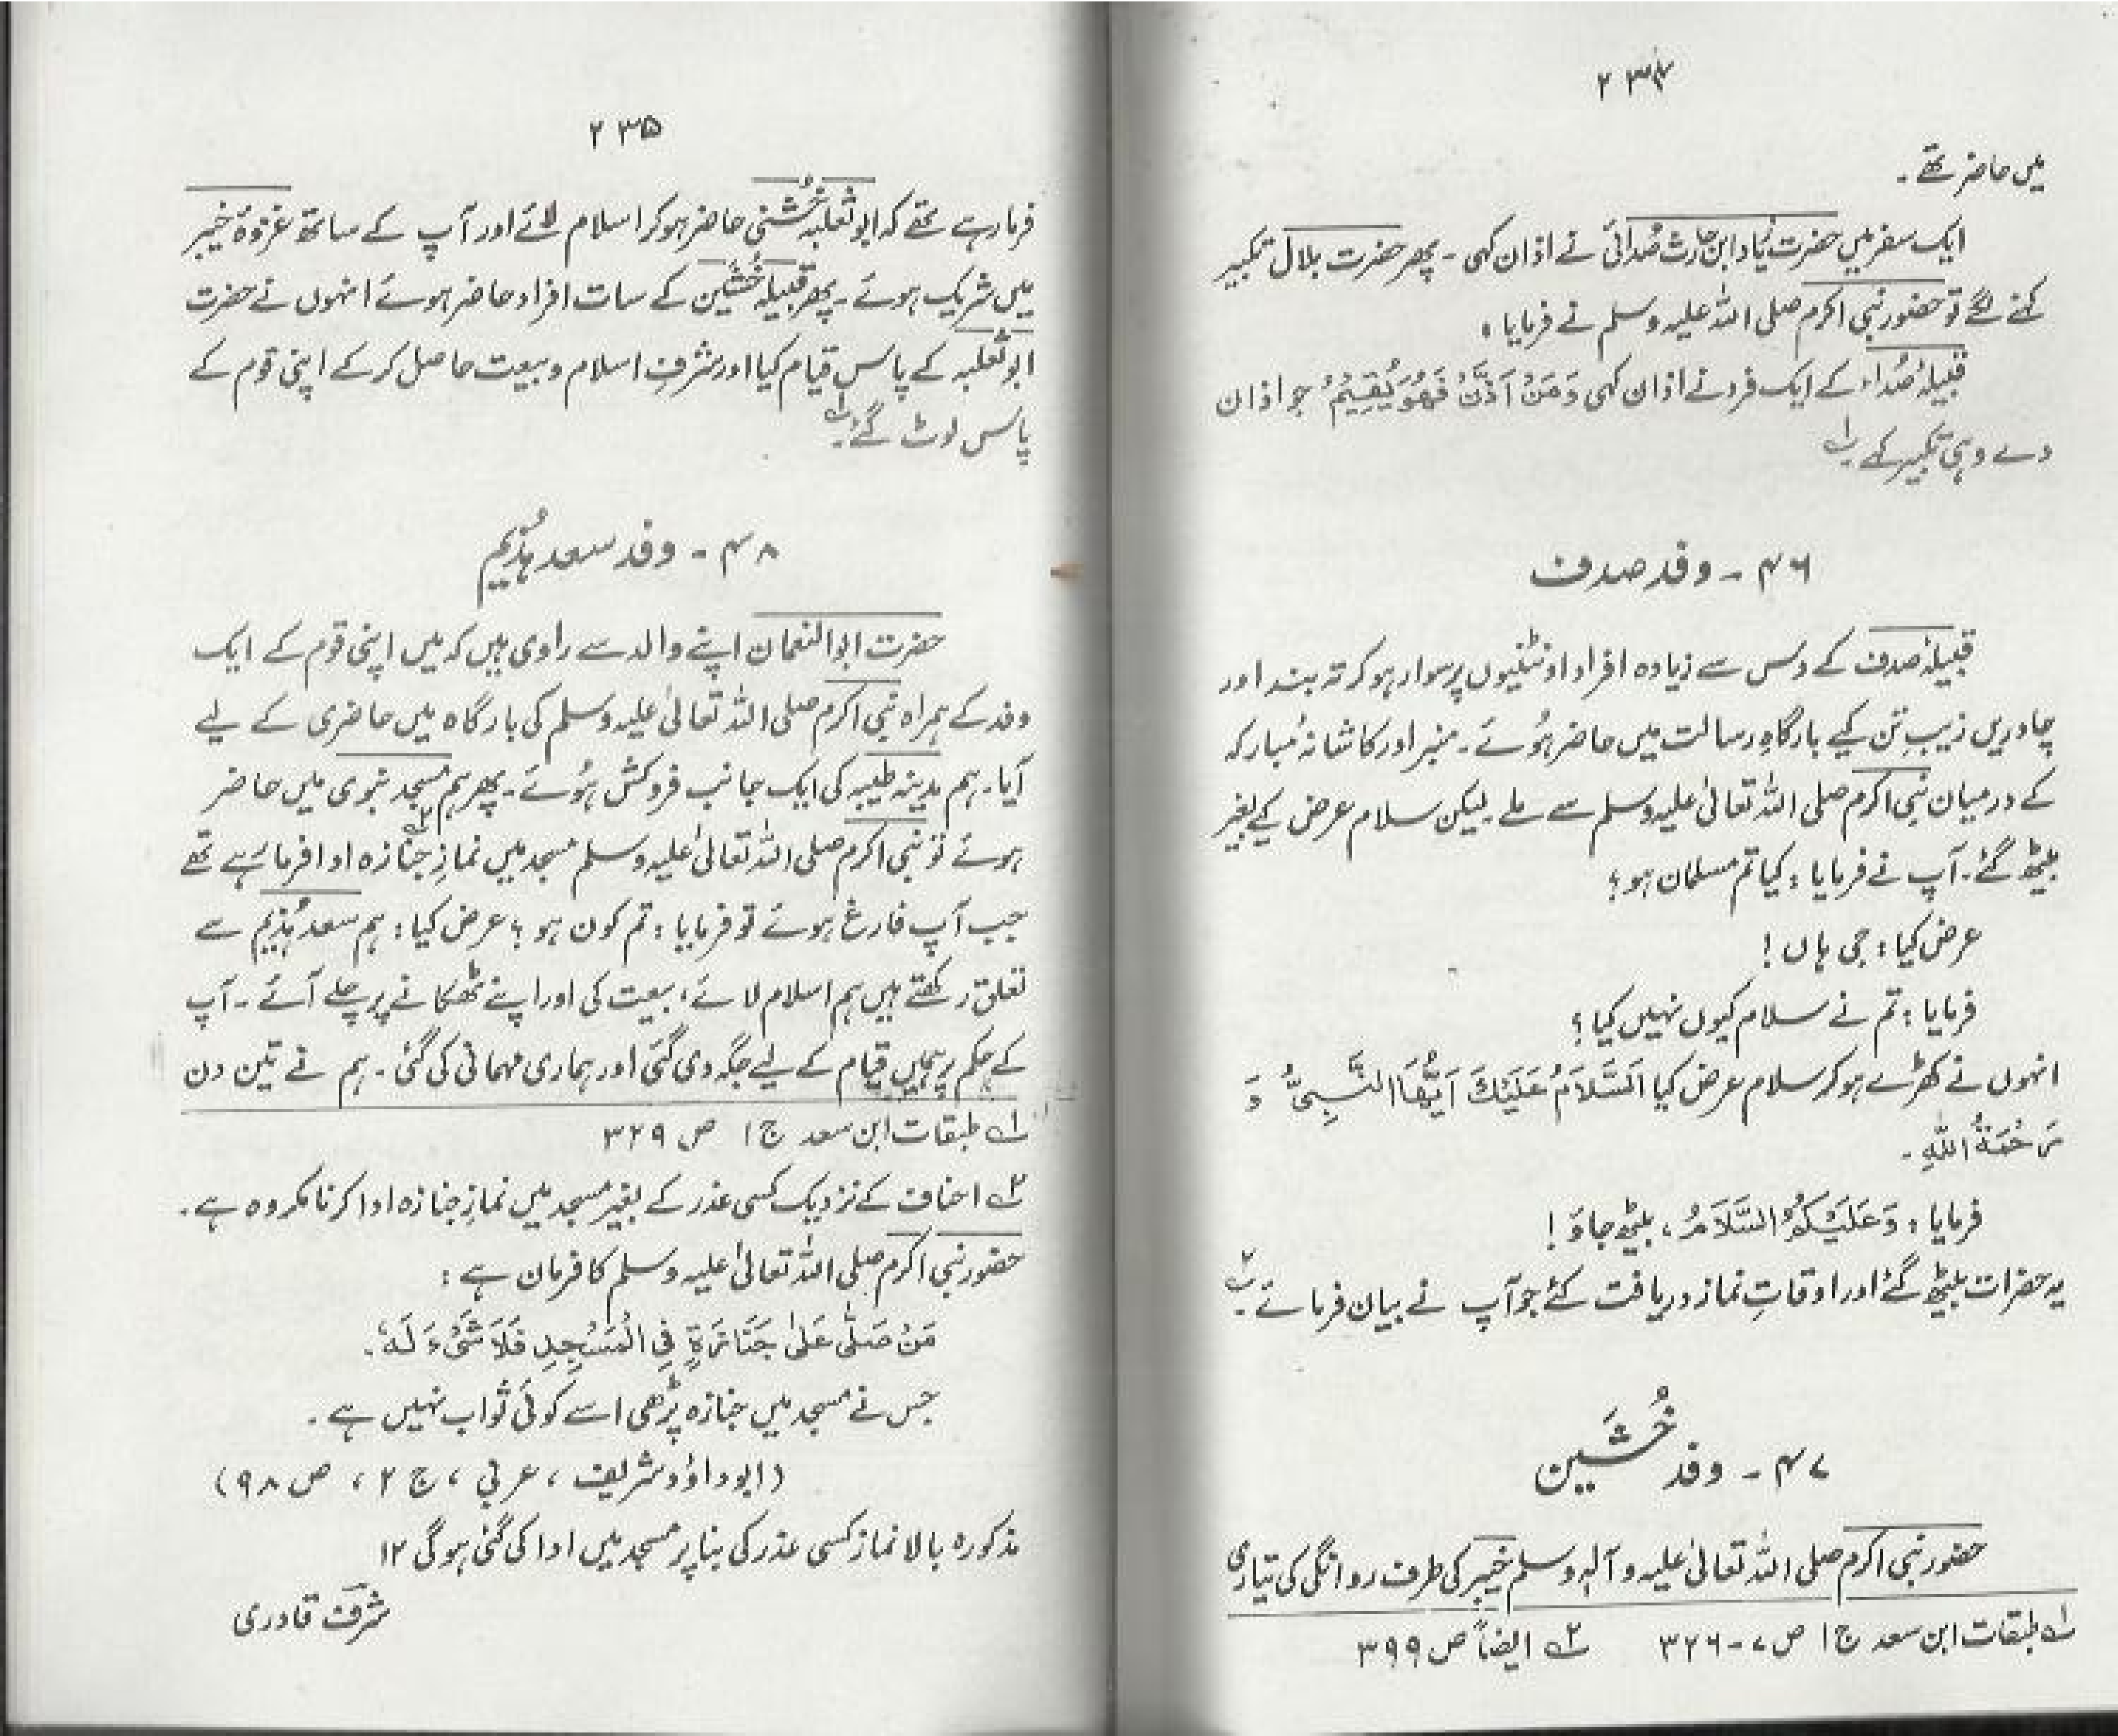 ۲۳۴
میں حاضر تھے۔
ایک سفر میں حضرت زیاد ابن حارث صُدائی نے اذان کہی۔ پھر حضرت بلال تکبیر
کہنے لگے تو حضور نبی اکرم صلی اللہ علیہ وسلم نے فرمایا:
قبیلۂ صُداء کے ایک فرد نے اذان کہی وَمَنْ اَذَّنَ فَهُوَ يُقِيْمُ جو اذان
دے وہی تکبیر کہے۔۱؎
۴۶ - وفد صدف
قبیلۂ صدف کے دس سے زیادہ افراد اونٹنیوں پر سوار ہو کر تہ بند اور
چادریں زیبِ تن کیے بارگاہِ رسالت میں حاضر ہُوئے۔ منبر اور کاشانۂ مبارکہ
کے درمیان نبی اکرم صلی اللہ تعالیٰ علیہ وسلم سے ملے۔ لیکن سلام عرض کیے بغیر
بیٹھ گئے۔ آپ نے فرمایا: کیا تم مسلمان ہو؟
عرض کیا: جی ہاں!
فرمایا: تم نے سلام کیوں نہیں کیا؟
انہوں نے کھڑے ہو کر سلام عرض کیا اَلسَّلَامُ عَلَيْكَ اَيُّهَا النَّبِيُّ وَ
رَحْمَةُ اللهِ۔
فرمایا: وَعَلَيْكُمُ السَّلَامُ، بیٹھ جاؤ!
یہ حضرات بیٹھ گئے اور اوقاتِ نماز دریافت کئے جو آپ نے بیان فرمائے۔۲؎
۴۷ - وفد خُشَین
حضور نبی اکرم صلی اللہ تعالیٰ علیہ وآلہ وسلم خیبر کی طرف روانگی کی تیاری
۱؎ طبقات ابن سعد ج ۱ ص ۷-۳۲۶ ۲؎ ایضاً ص ۳۹۹
۲۳۵
فرما رہے تھے کہ ابو ثعلبہ خُشنی حاضر ہو کر اسلام لائے اور آپ کے ساتھ غزوۂ خیبر
میں شریک ہوئے۔ پھر قبیلہ خُشَین کے سات افراد حاضر ہوئے انہوں نے حضرت
ابو ثعلبہ کے پاس قیام کیا اور شرفِ اسلام و بیعت حاصل کر کے اپنی قوم کے
پاس لوٹ گئے۔۱؎
۴۸ - وفد سعد ہُذَیم
حضرت ابو النعمان اپنے والد سے راوی ہیں کہ میں اپنی قوم کے ایک
وفد کے ہمراہ نبی اکرم صلی اللہ تعالیٰ علیہ وسلم کی بارگاہ میں حاضری کے لیے
آیا۔ ہم مدینہ طیبہ کی ایک جانب فروکش ہُوئے۔ پھر ہم مسجد نبوی میں حاضر
ہوئے تو نبی اکرم صلی اللہ تعالیٰ علیہ وسلم مسجد میں نمازِ جنازہ۲؎ ادا فرما رہے تھے
جب آپ فارغ ہوئے تو فرمایا: تم کون ہو؟ عرض کیا: ہم سعد ہُذیم سے
تعلق رکھتے ہیں ہم اسلام لائے، بیعت کی اور اپنے ٹھکانے پر چلے آئے۔ آپ
کے حکم پر ہمیں قیام کے لیے جگہ دی گئی اور ہماری مہمانی کی گئی۔ ہم نے تین دن
۱؎ طبقات ابن سعد ج ۱ ص ۳۲۹
۲؎ احناف کے نزدیک کسی عذر کے بغیر مسجد میں نمازِ جنازہ ادا کرنا مکروہ ہے۔
حضور نبی اکرم صلی اللہ تعالیٰ علیہ وسلم کا فرمان ہے:
مَنْ صَلّٰى عَلٰى جَنَازَةٍ فِى الْمَسْجِدِ فَلَا شَىْءَ لَهٗ۔
جس نے مسجد میں جنازہ پڑھی اسے کوئی ثواب نہیں ہے۔
(ابو داؤد شریف، عربی، ج ۲، ص ۹۸)
مذکورہ بالا نماز کسی عذر کی بنا پر مسجد میں ادا کی گئی ہو گی ۱۲
شرف قادری